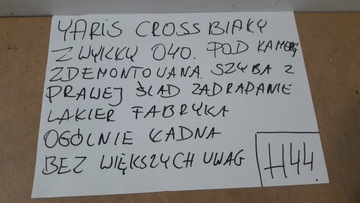 YARIS CROSS BIAŁY
ZWYKŁY 040. POD KAMERĘ
ZDEMONTOWANA SZYBA Z
PRAWEJ ŚLAD ZADRAPANIE
LAKIER FABRYKA
OGÓLNIE ŁADNA
BEZ WIĘKSZYCH UWAG
H44.